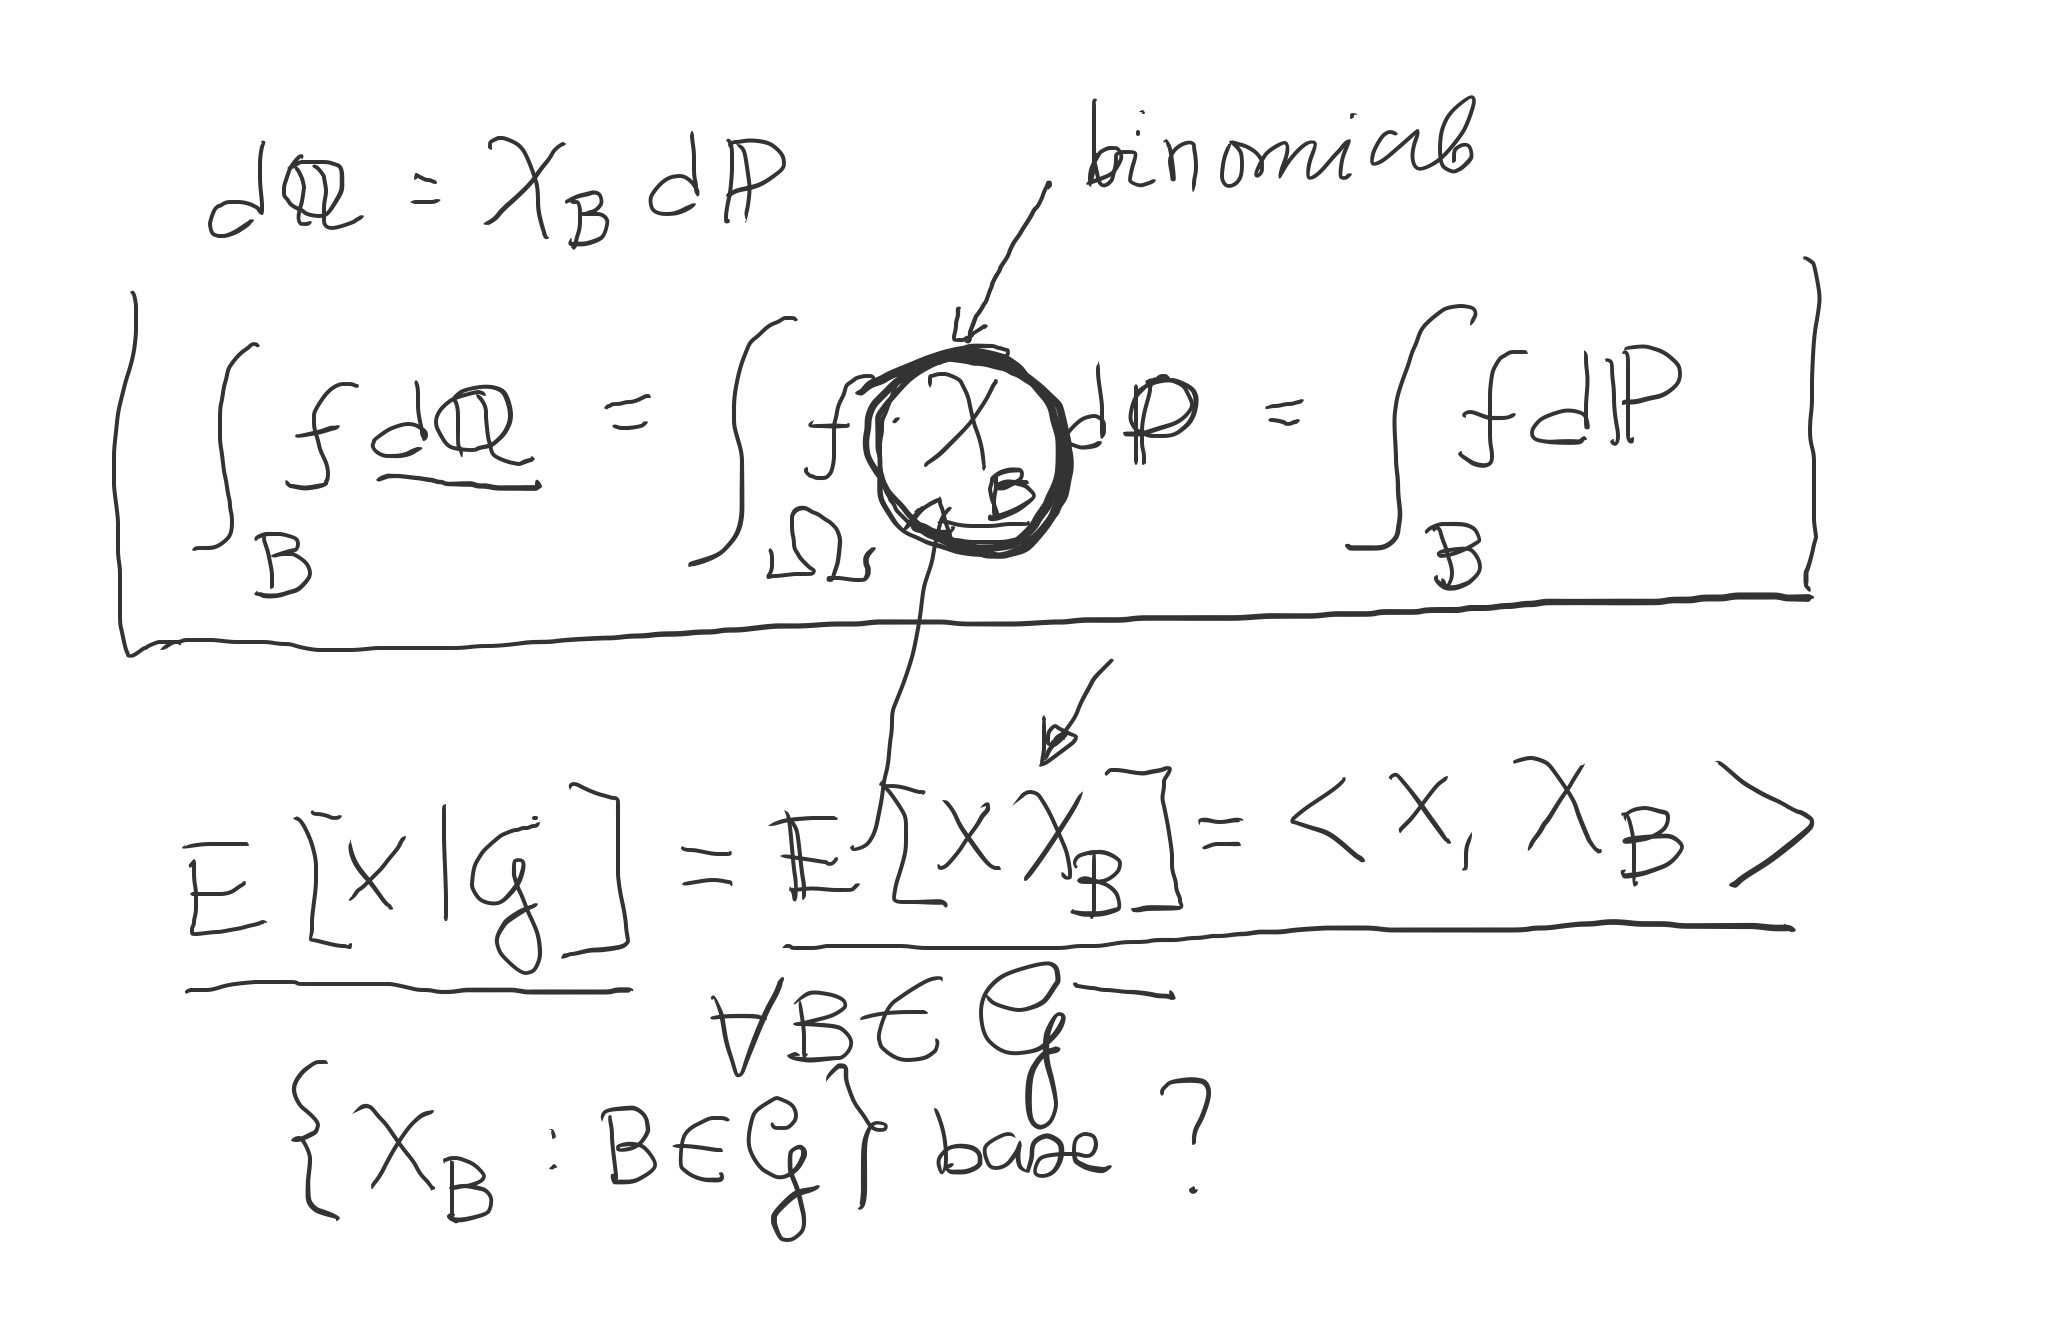 dℚ = χ_B dℙ
binomial
∫_B f dℚ = ∫_Ω f · χ_B dℙ = ∫_B f dℙ
E[X|𝒢] = E[X χ_B] = <X, χ_B>
∀B ∈ 𝒢
{χ_B : B ∈ 𝒢} base ?